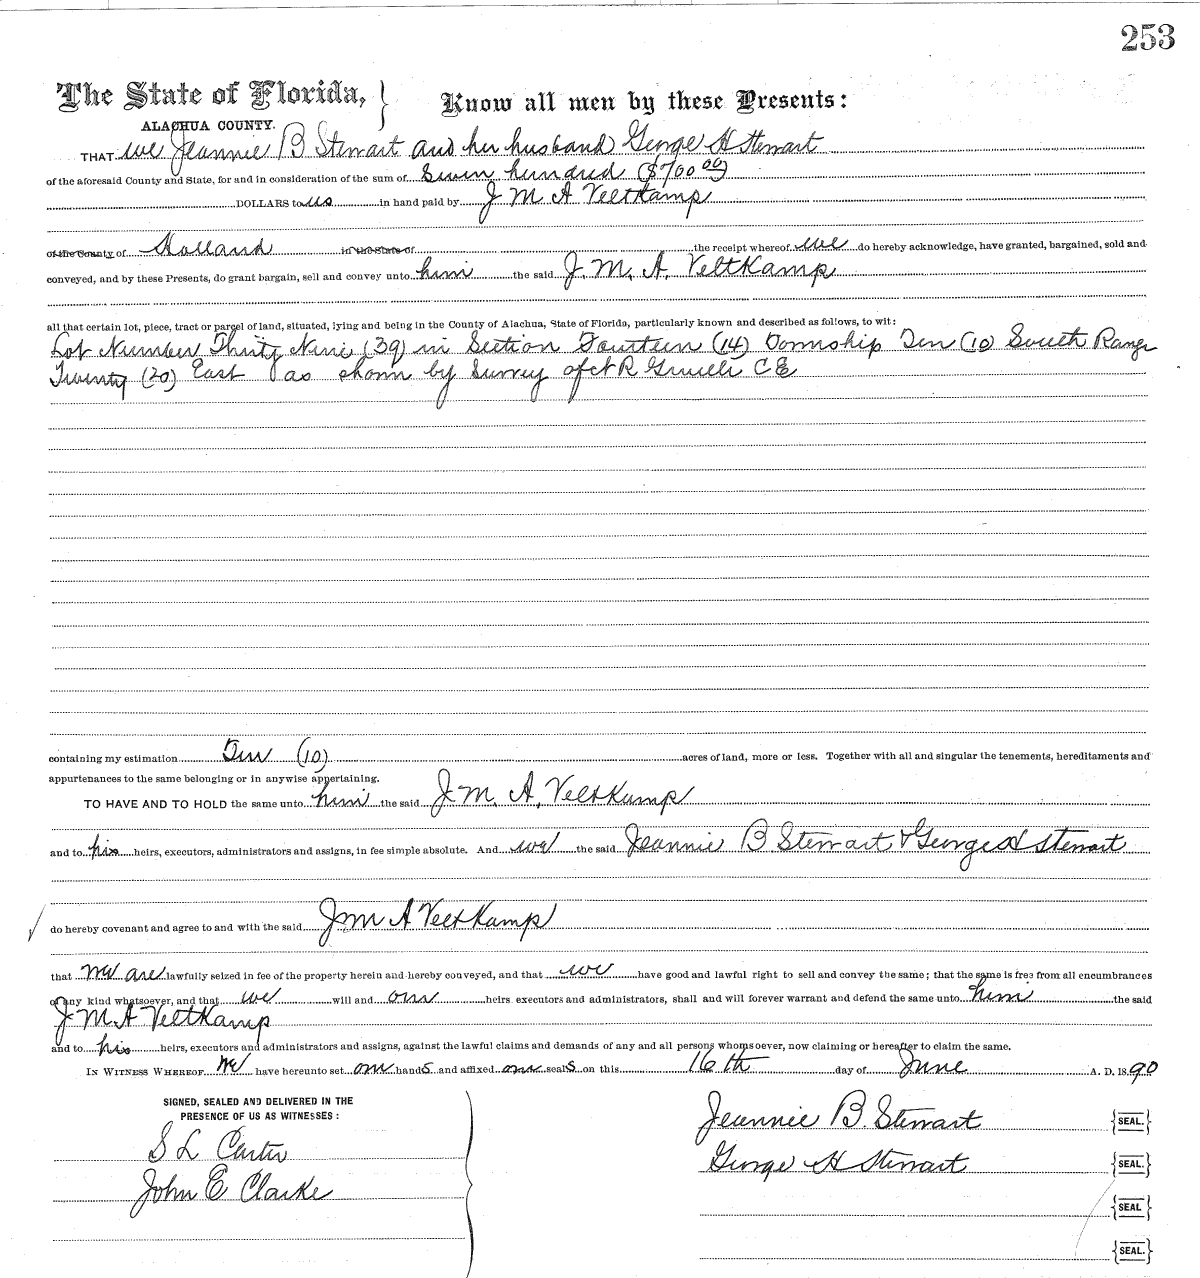 253
The State of Florida, } Know all men by these Presents:
ALACHUA COUNTY.
THAT we Jeannie B Stewart and her husband George H Stewart
of the aforesaid County and State, for and in consideration of the sum of Seven hundred ($700 00)
DOLLARS to us in hand paid by J M A VeltKamp
of the County of Holland in the State of the receipt whereof we do hereby acknowledge, have granted, bargained, sold and
conveyed, and by these Presents, do grant bargain, sell and convey unto him the said J. M. A. VeltKamp
all that certain lot, piece, tract or parcel of land, situated, lying and being in the County of Alachua, State of Florida, particularly known and described as follows, to wit:
Lot Number Thirty Nine (39) in Section Fourteen (14) Township Ten (10) South Range
Twenty (20) East as shown by Survey of R C E
containing my estimation Ten (10) acres of land, more or less. Together with all and singular the tenements, hereditaments and
appurtenances to the same belonging or in anywise appertaining.
TO HAVE AND TO HOLD the same unto him the said J. M. A. VeltKamp
and to his heirs, executors, administrators and assigns, in fee simple absolute. And we the said Jeannie B Stewart & George H Stewart
do hereby covenant and agree to and with the said J M A VeltKamp
that we are lawfully seized in fee of the property herein and hereby conveyed, and that we have good and lawful right to sell and convey the same; that the same is free from all encumbrances
of any kind whatsoever, and that we will and our heirs executors and administrators, shall and will forever warrant and defend the same unto him the said
J M A VeltKamp
and to his heirs, executors and administrators and assigns, against the lawful claims and demands of any and all persons whomsoever, now claiming or hereafter to claim the same.
IN WITNESS WHEREOF we have hereunto set our hands and affixed our seals on this 16th day of June A. D. 1890
SIGNED, SEALED AND DELIVERED IN THE
PRESENCE OF US AS WITNESSES:
S L Carter
John E Clarke
Jeannie B. Stewart {SEAL.}
George H Stewart {SEAL.}
{SEAL}
{SEAL.}